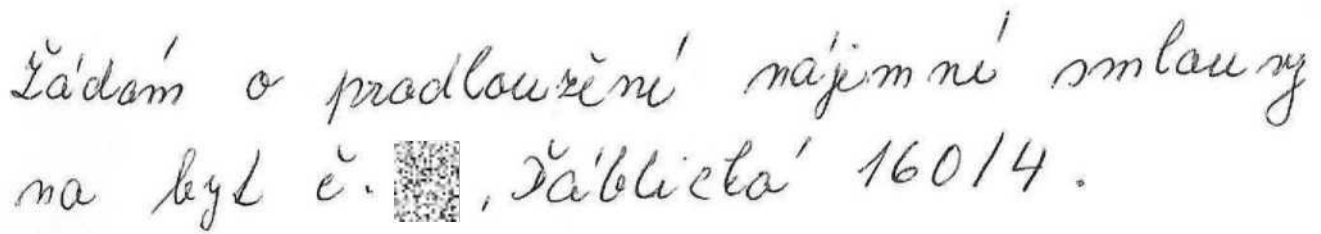 Žádám o prodloužění nájemní smlouvy
na byt č. , Ďáblická 160/4.